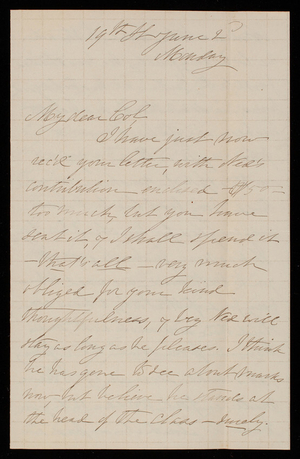 19th St June 2d
Monday
My dear Col,
I have just now
rec'd your letter, with Ned's
contribution enclosed - $50 -
too much, but you have
sent it, & I shall spend it
- that's all - very much
obliged for your kind
thoughtfulness, & Ned will
stay as long as he pleases. I think
he has gone to see about marks
now but believe he stands at
the head of the class - nicely.